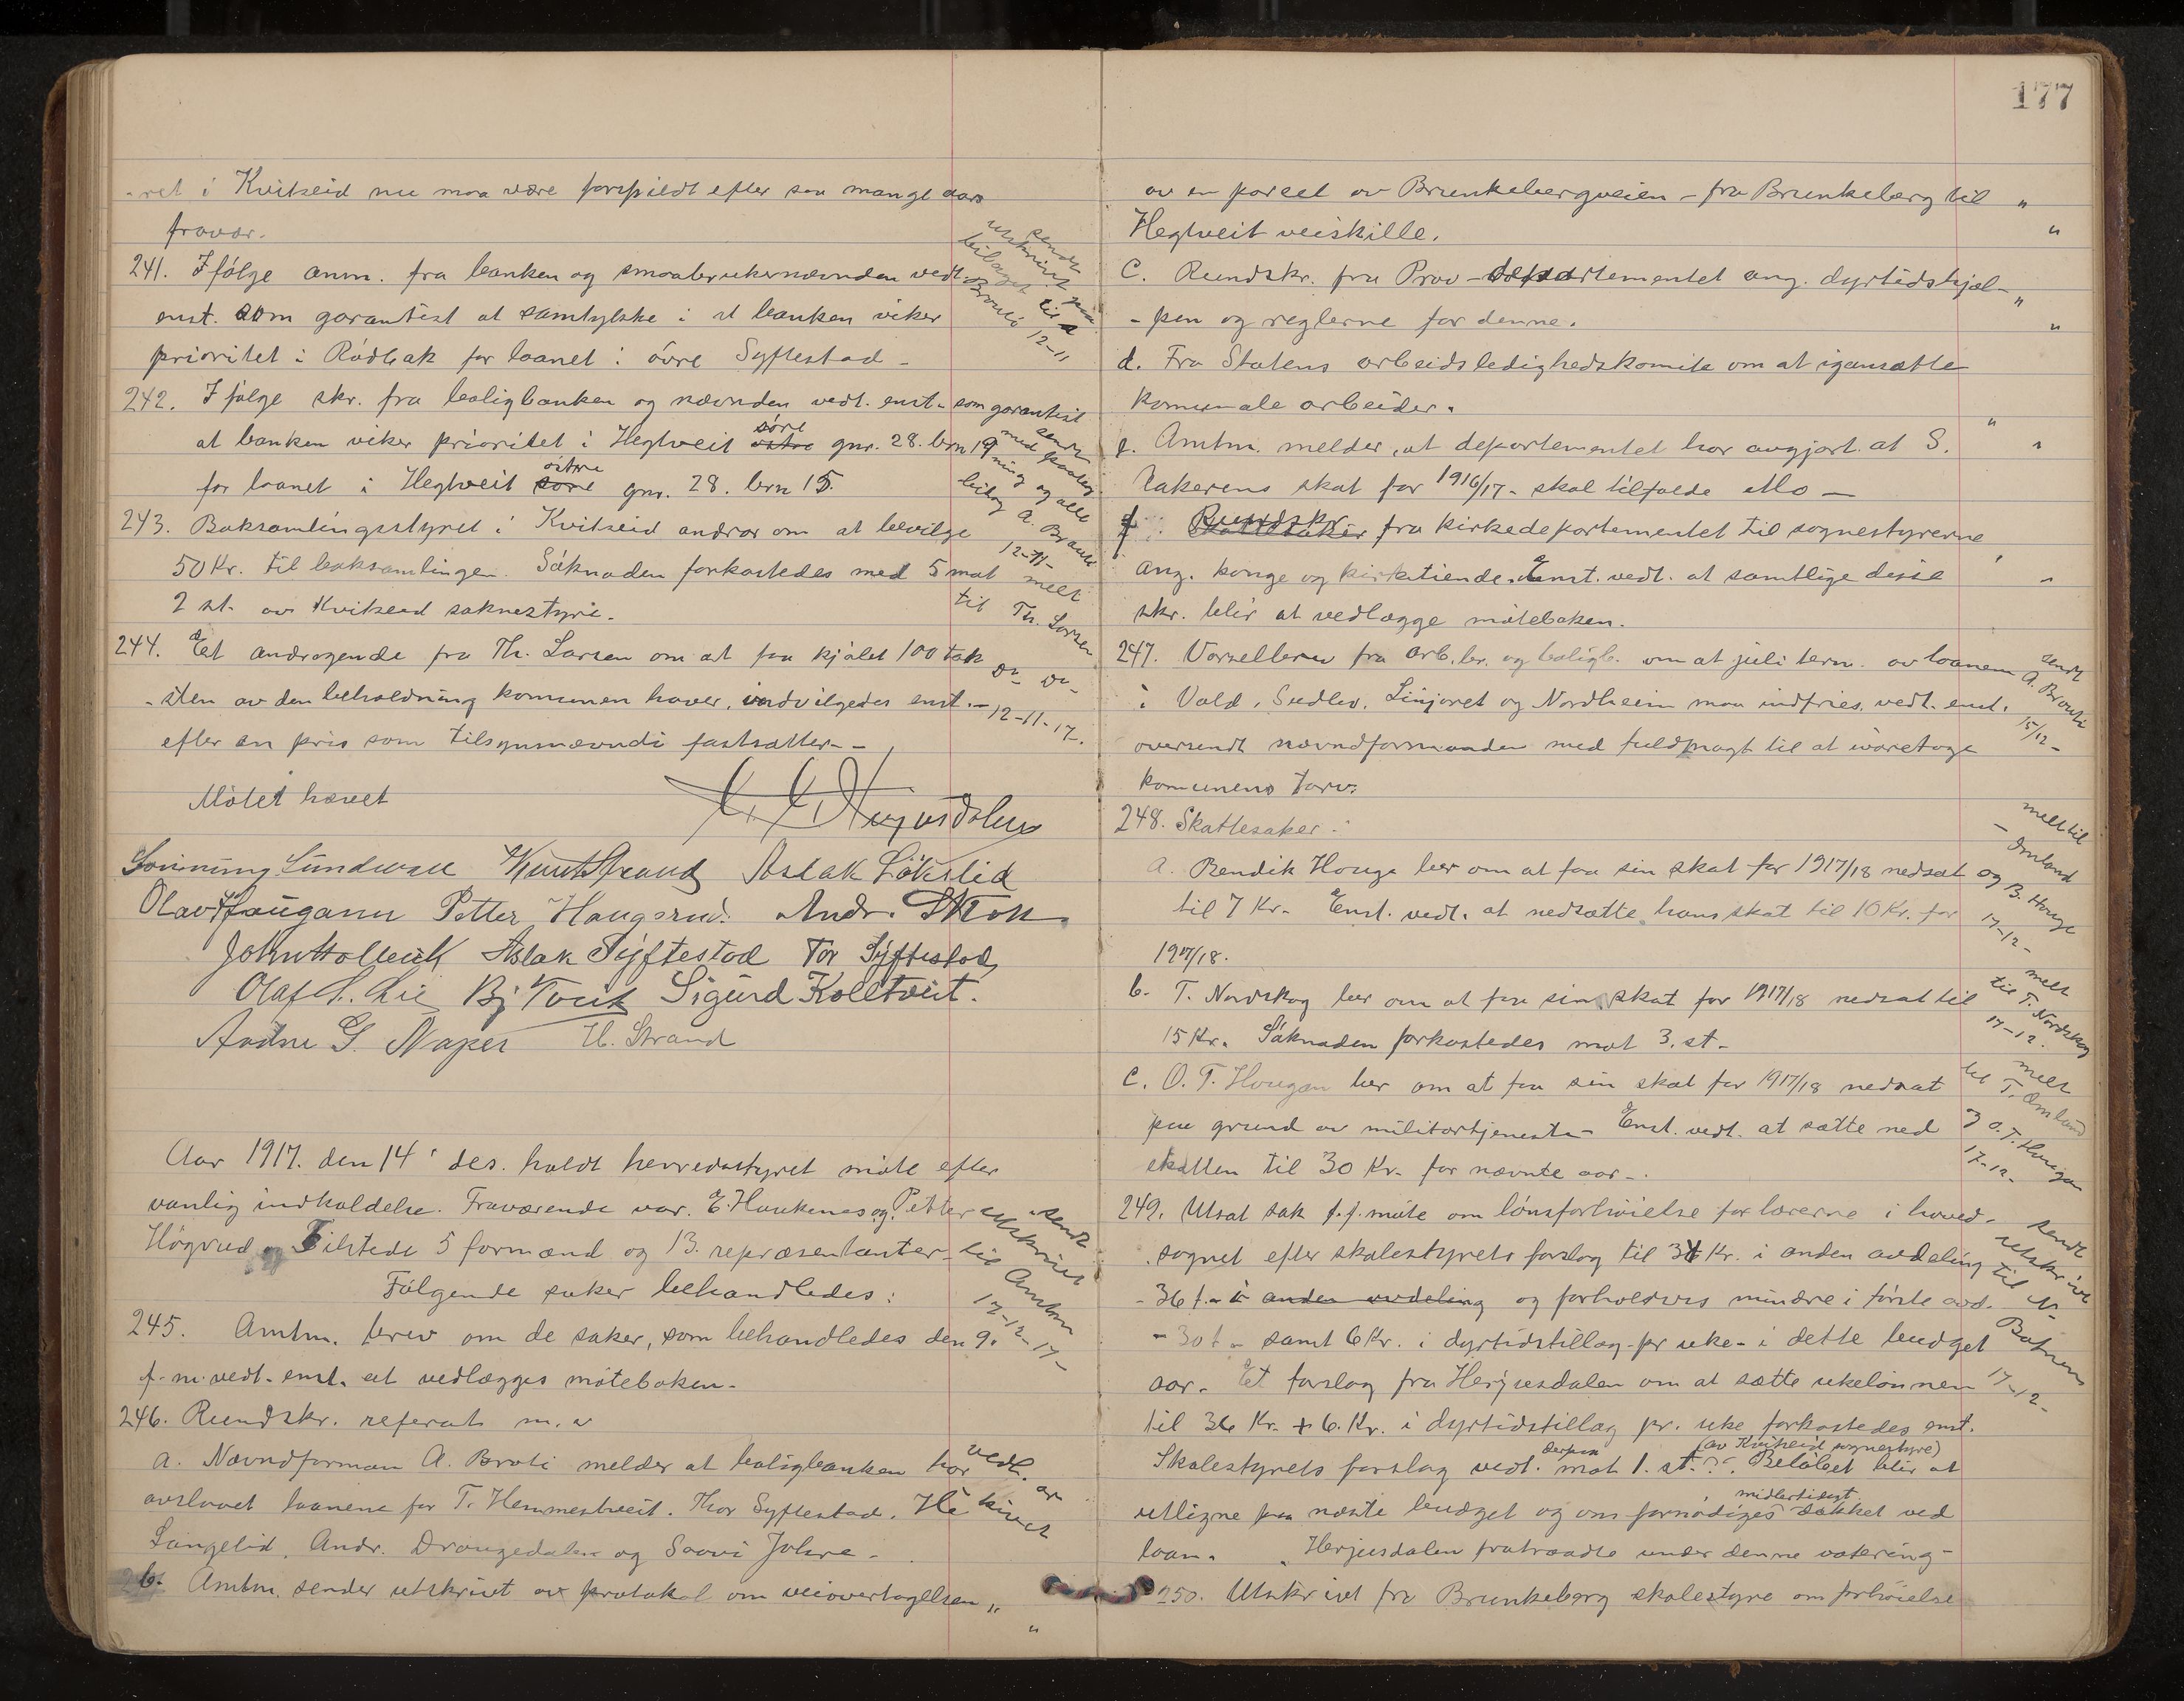 -ret i Kvitseid nu maa være forspildt efter saa mange aars
fravær.
241. Ifølge anm. fra banken og smaabrukernævnden vedt.
enst. som garantist at samtykke i at banken viker
prioritet i Rødbak for laanet i øvre Syftestad -
sendt utskrivt bilaget til A Brauti 12-11
242. Ifølge skr. fra boligbanken og nævnden vedt. enst. som garantist
at banken viker prioritet i Hegtveit søre gnr. 28. brn 19
for laanet i Hegtveit østre gnr. 28. brn 15.
sendt med paateg ning og alle bilag A. Brauti 12-11-
243. Boksamlingsstyret i Kvitseid andrar om at bevilge
50 Kr. til boksamlingen. Søknaden forkastedes med 5 mot
2 st. av Kvitseid soknestyre.
244. Et andragende fra Th. Larsen om at faa kjøbt 100 tak
-sten av den beholdning komunen haver, indvilgedes enst. -
efter en pris som tilsynsnævndi fastsætter -
melt til Th. Larsen 12-11-17.
Møtet hævet
Knut Strand Aslak Løkslid
Olav Haugann Petter Haugerud. Andr. Skok
Aslak Syftestad Tor Syftestad
Olaf S. Lie Bj Tveit Sigurd Kolltveit.
Andne G. Naper H. Strand
Aar 1917. den 14' des. holdt herredsstyret møte efter
vanlig indkaldelse. Fraværende var. E. Haukenes og Petter
Høgrud og Tilstede 5 formænd og 13. repræsentanter -
Følgende saker behandledes:
245. Amtm. brev om de saker, som behandledes den 9.
f. m. vedt. enst. at vedlægges møteboken.
sendt utskrivt til Amtm 17-12-17-
246. Rundskr. referat m. v
a. Nævndforman A. Brøti melder at boligbanken har
avslaaet laanene for T. Hemmestveit. Thor Syftestad.
Langelid, Andr. Drangedalen og Saavi Johre -
b. Amtm. sender utskrivt av protokol om veiovertagelsen "
"
177
av en parcel av Brunkebergveien - fra Brunkeberg til "
Hegtveit veiskille. "
C. Rundskr. fra Prov-departementet ang. dyrtidshjæl- "
-pen og reglerne for denne. "
d. Fra Statens arbeidsledighedskomite om at igansætte
komunale arbeider. "
e. Amtm. melder, at departementet har avgjort at S.
Aakerens skat for 1916/17 - skal tilfalde Mo -
f. Rundskr fra kirkedepartementet til sognestyrerne
ang. konge og kirketiende. Enst. vedt. at samtlige disse
skr. blir at vedlægge møteboken.
247. Varsellerev fra arb.br. og boligb. om at juli term. av laanem
i Vold, Sudlev, Linjoret og Nordheim maa indfries, vedt. enst.
oversendt nævndformanden med fuldmagt til at ivaretage
komunens tarv.
sendt A. Brouti 15/12-
248. Skattesaker:
a. Bendik Houge ber om at faa sin skat for 1917/18 nedsat
til 7 Kr. Enst. vedt. at nedsætte hans skat til 10 Kr. for
1917/18.
melt til Omland og B. Houge 17-12-
b. T. Nordskog ber om at faa sin skat for 1917/18 nedsat til
15 Kr. Søknaden forkastedes mot 3. st -
melt til T. Nordskog 17-12.
C. O. T. Hougan ber om at faa sin skat for 1917/18 nedsat
paa grund av militærtjeneste - Enst. vedt. at sætte ned
skatten til 30 Kr. for nævnte aar -
melt til T. Omland og O. T. Hougan 17-12.
249. Utsat sak f. f. møte om lønsforhøielse for lærerne i hoved-
sognet efter skolestyrets forslag til 36 Kr. i anden avdeling
- 36 t. - i anden avdeling og forholdsvis mindre i første avd.
- 30 t - samt 6 Kr. i dyrtidstillæg pr uke - i dette budget
aar. Et forslag fra Herjusdalen om at sætte ukelønnen
til 36 Kr. + 6. Kr. i dyrtidstillæg pr. uke forkastedes enst.
Skolestyrets forslag vedt. derpaa mot 1. st. (av Kviteseid sognestyre) Beløbet blir at
utligne paa næste budget og om fornødiges midlertidigt dækket ved
laan. Herjusdalen fratraadte under denne votering -
sendt utskrivt til N- Batnens 17-12-
250. Utskrivt fra Brunkeberg skolestyre om forhøielse